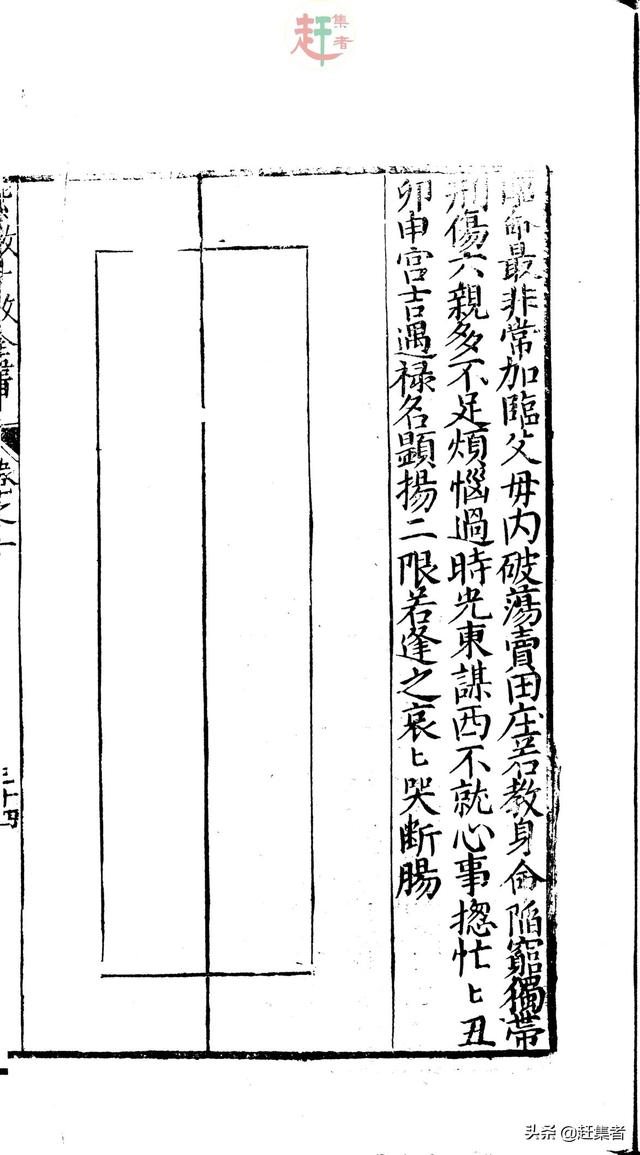 赶集者
命最非常加臨父母内破蕩賣田庄若教身命陷窮獨帶
刑傷六親多不足煩惱過時光東謀西不就心事摠忙〻丑
卯申宮吉遇祿名顯揚二限若逢之哀〻哭断腸
卷之一
三十四
头条 @赶集者